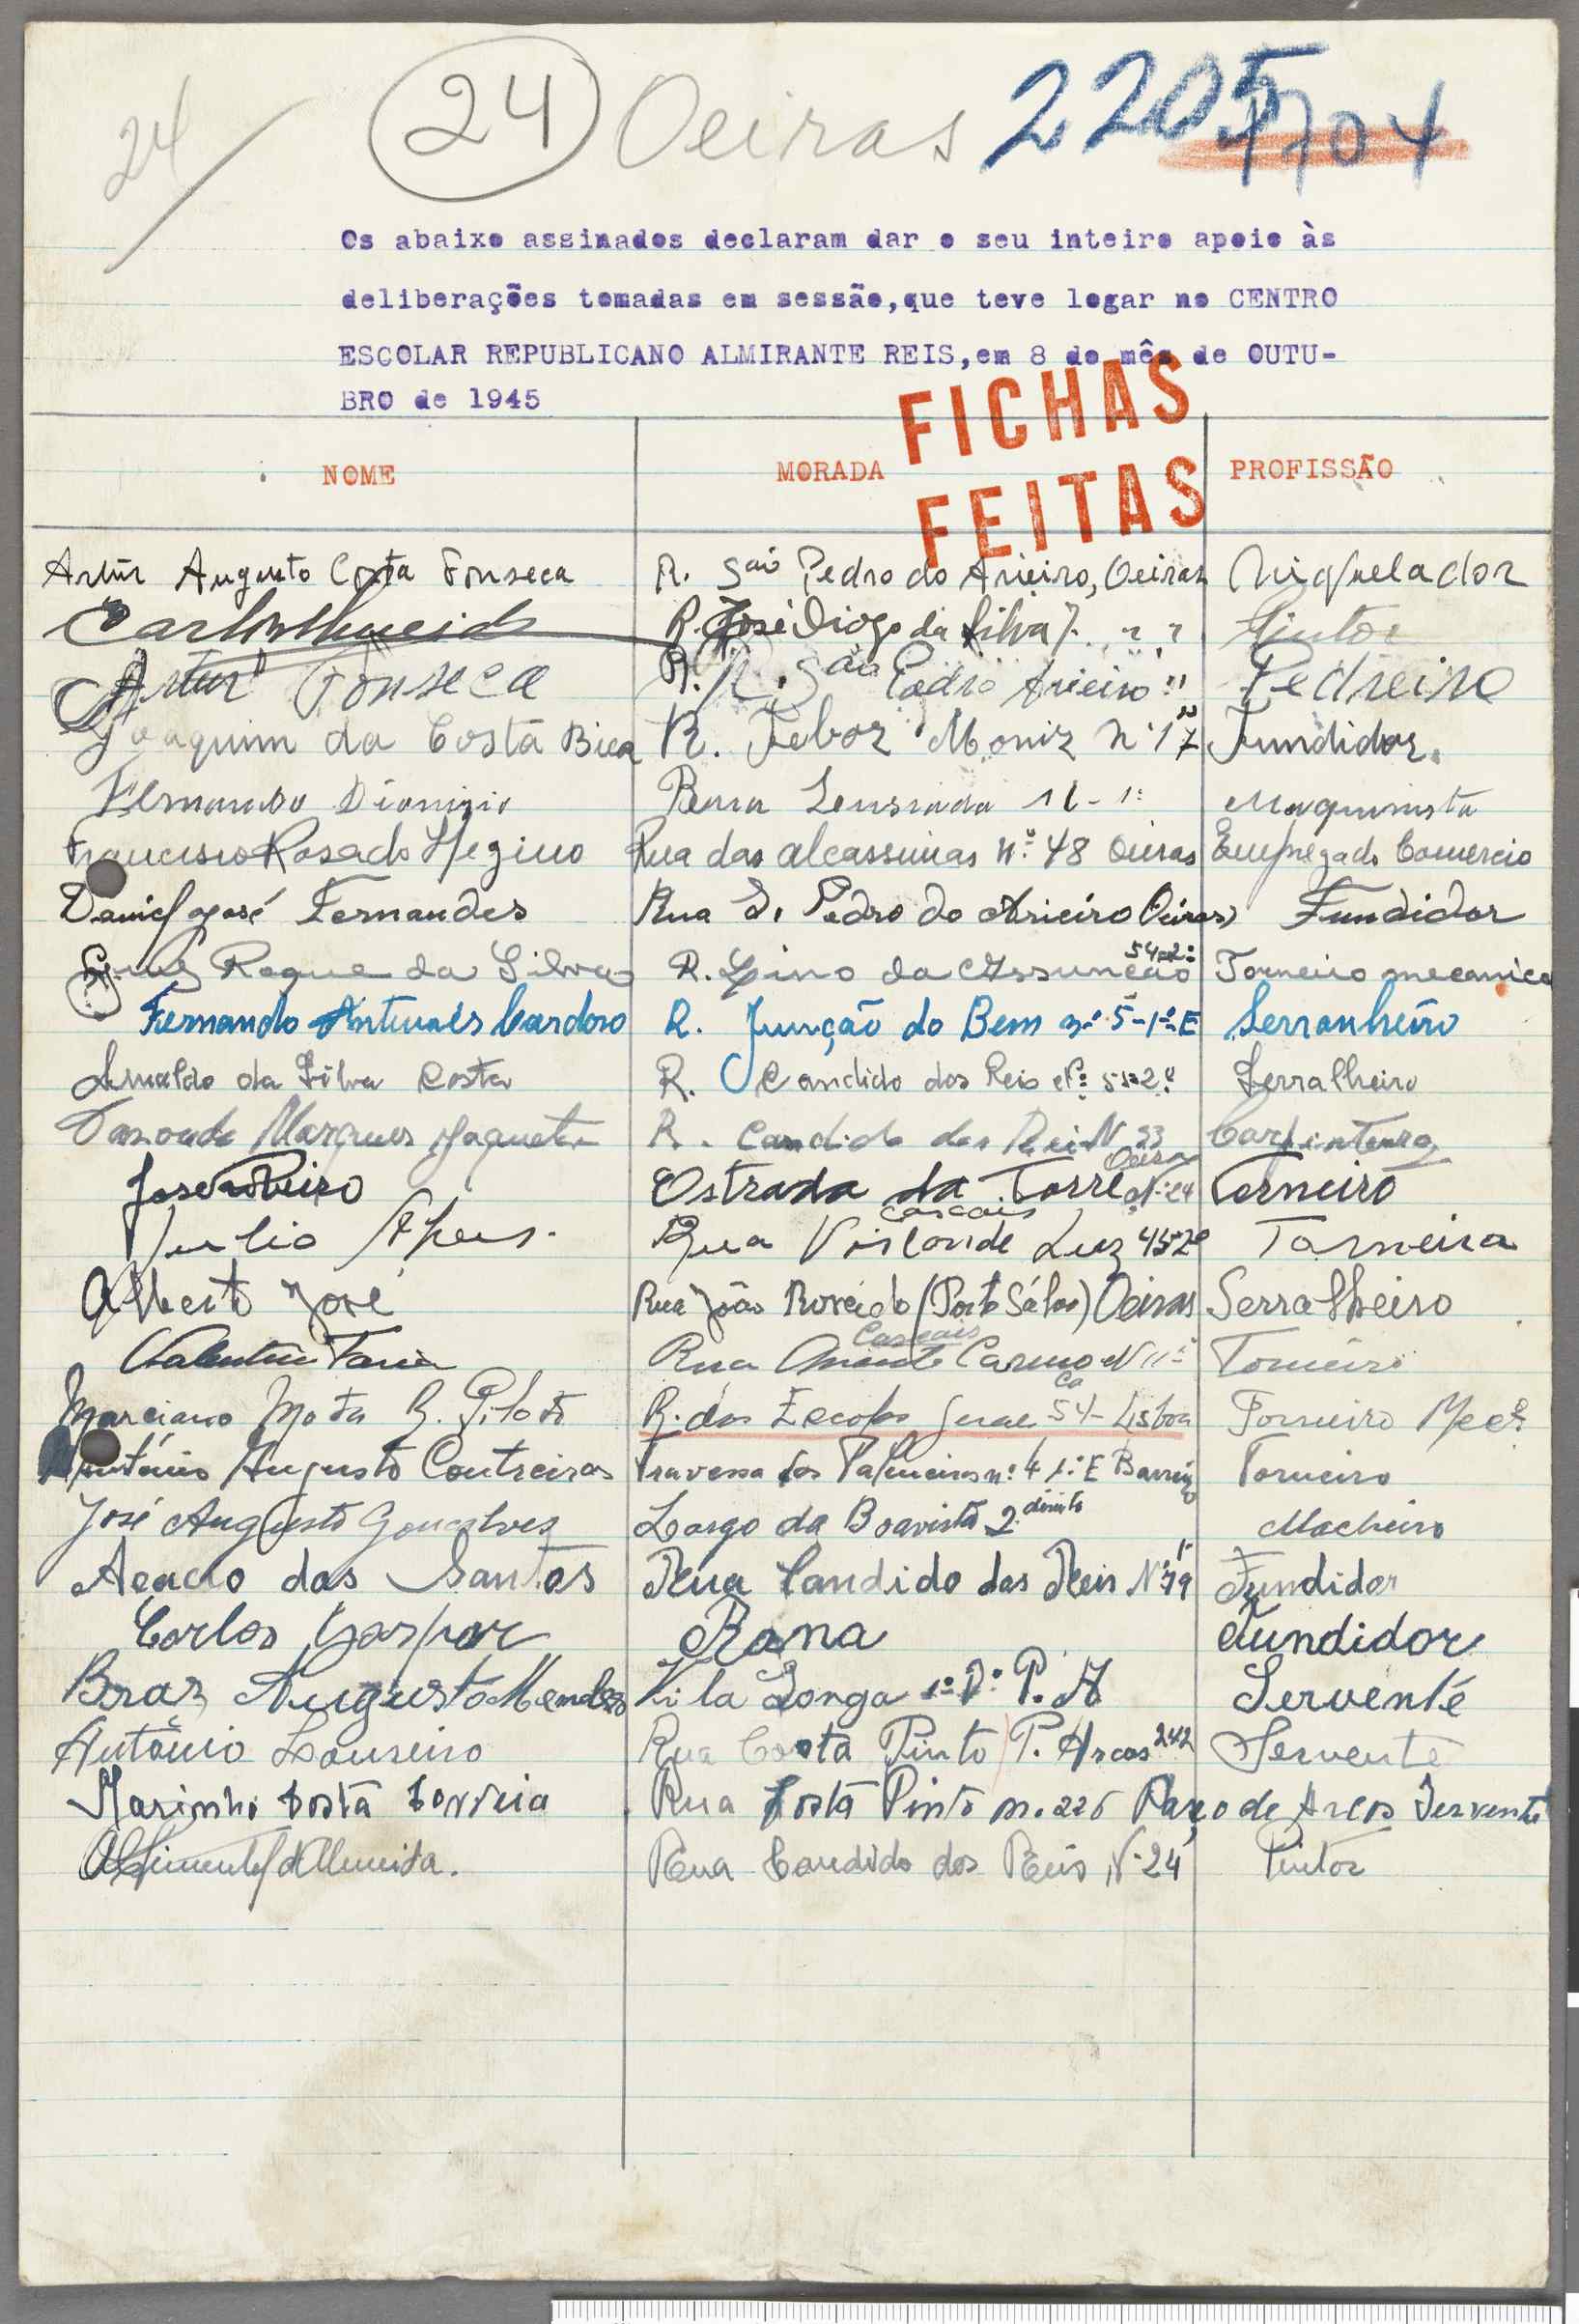 24
24 Oeiras 2205 1704
Os abaixo assinados declaram dar o seu inteiro apoio às
deliberações tomadas em sessão,que teve logar no CENTRO
ESCOLAR REPUBLICANO ALMIRANTE REIS,em 8 do mês de OUTU-
BRO de 1945
FICHAS
FEITAS
NOME MORADA PROFISSÃO
Artur Augusto Costa Fonseca R. São Pedro do Arieiro, Oeiras Niquelador
Carlos Almeida R. José Diogo da Silva 7 " " Pintor
Artur Fonseca R. São Pedro Arieiro " Pedreiro
Joaquim da Costa Bica R. Febor Moniz Nº 17 Fundidor
Fernando Dionizio 1º Maquinista
Francisco Rosado Higino Rua das alcassimas nº 48 Oeiras Empregado Comercio
Daniel José Fernandes Rua S. Pedro do Arieiro Oeiras Fundidor
Roque da Silva R. Lino da Assunção 54-2º Torneiro mecanico
Fernando Antunes Cardoso R. Junção do Bem nº 5-1º E Serranheiro
Arnaldo da Silva Costa R. Candido dos Reis Nº 51-2º Serralheiro
Marques R. Candido dos Reis N 23 Carpinteiro
José Oeiras
Estrada da Torre Nº 24 Torneiro
Julio Cascais
Rua Visconde Luz 45 2º Torneiro
Alberto José Rua João Roveido (Porto Sálvo) Oeiras Serralheiro
Valentim Faria Cascais
Rua Carmo Nº 11 Torneiro
Marciano Mota R. Piloto R. das Escolas Gerae 54 - Lisboa Torneiro Mecº
António Augusto Contreiras Travessa das Palmeiras nº 4 1º E Torneiro
José Augusto Gonçalves Largo da Boavista 2 direito Macheiro
Acacio dos Santos Rua Candido dos Reis Nº 19 Fundidor
Carlos Gaspar Rana Fundidor
Braz Augusto Mendes Vila Longa 1º D.º P. A Servente
António Loureiro Rua Costa Pinto P. Arcos 242 Servente
Marinho Costa Correia Rua Costa Pinto nº 226 Paço de Arcos Servente
Almeida. Rua Candido dos Reis Nº 24 Pintor